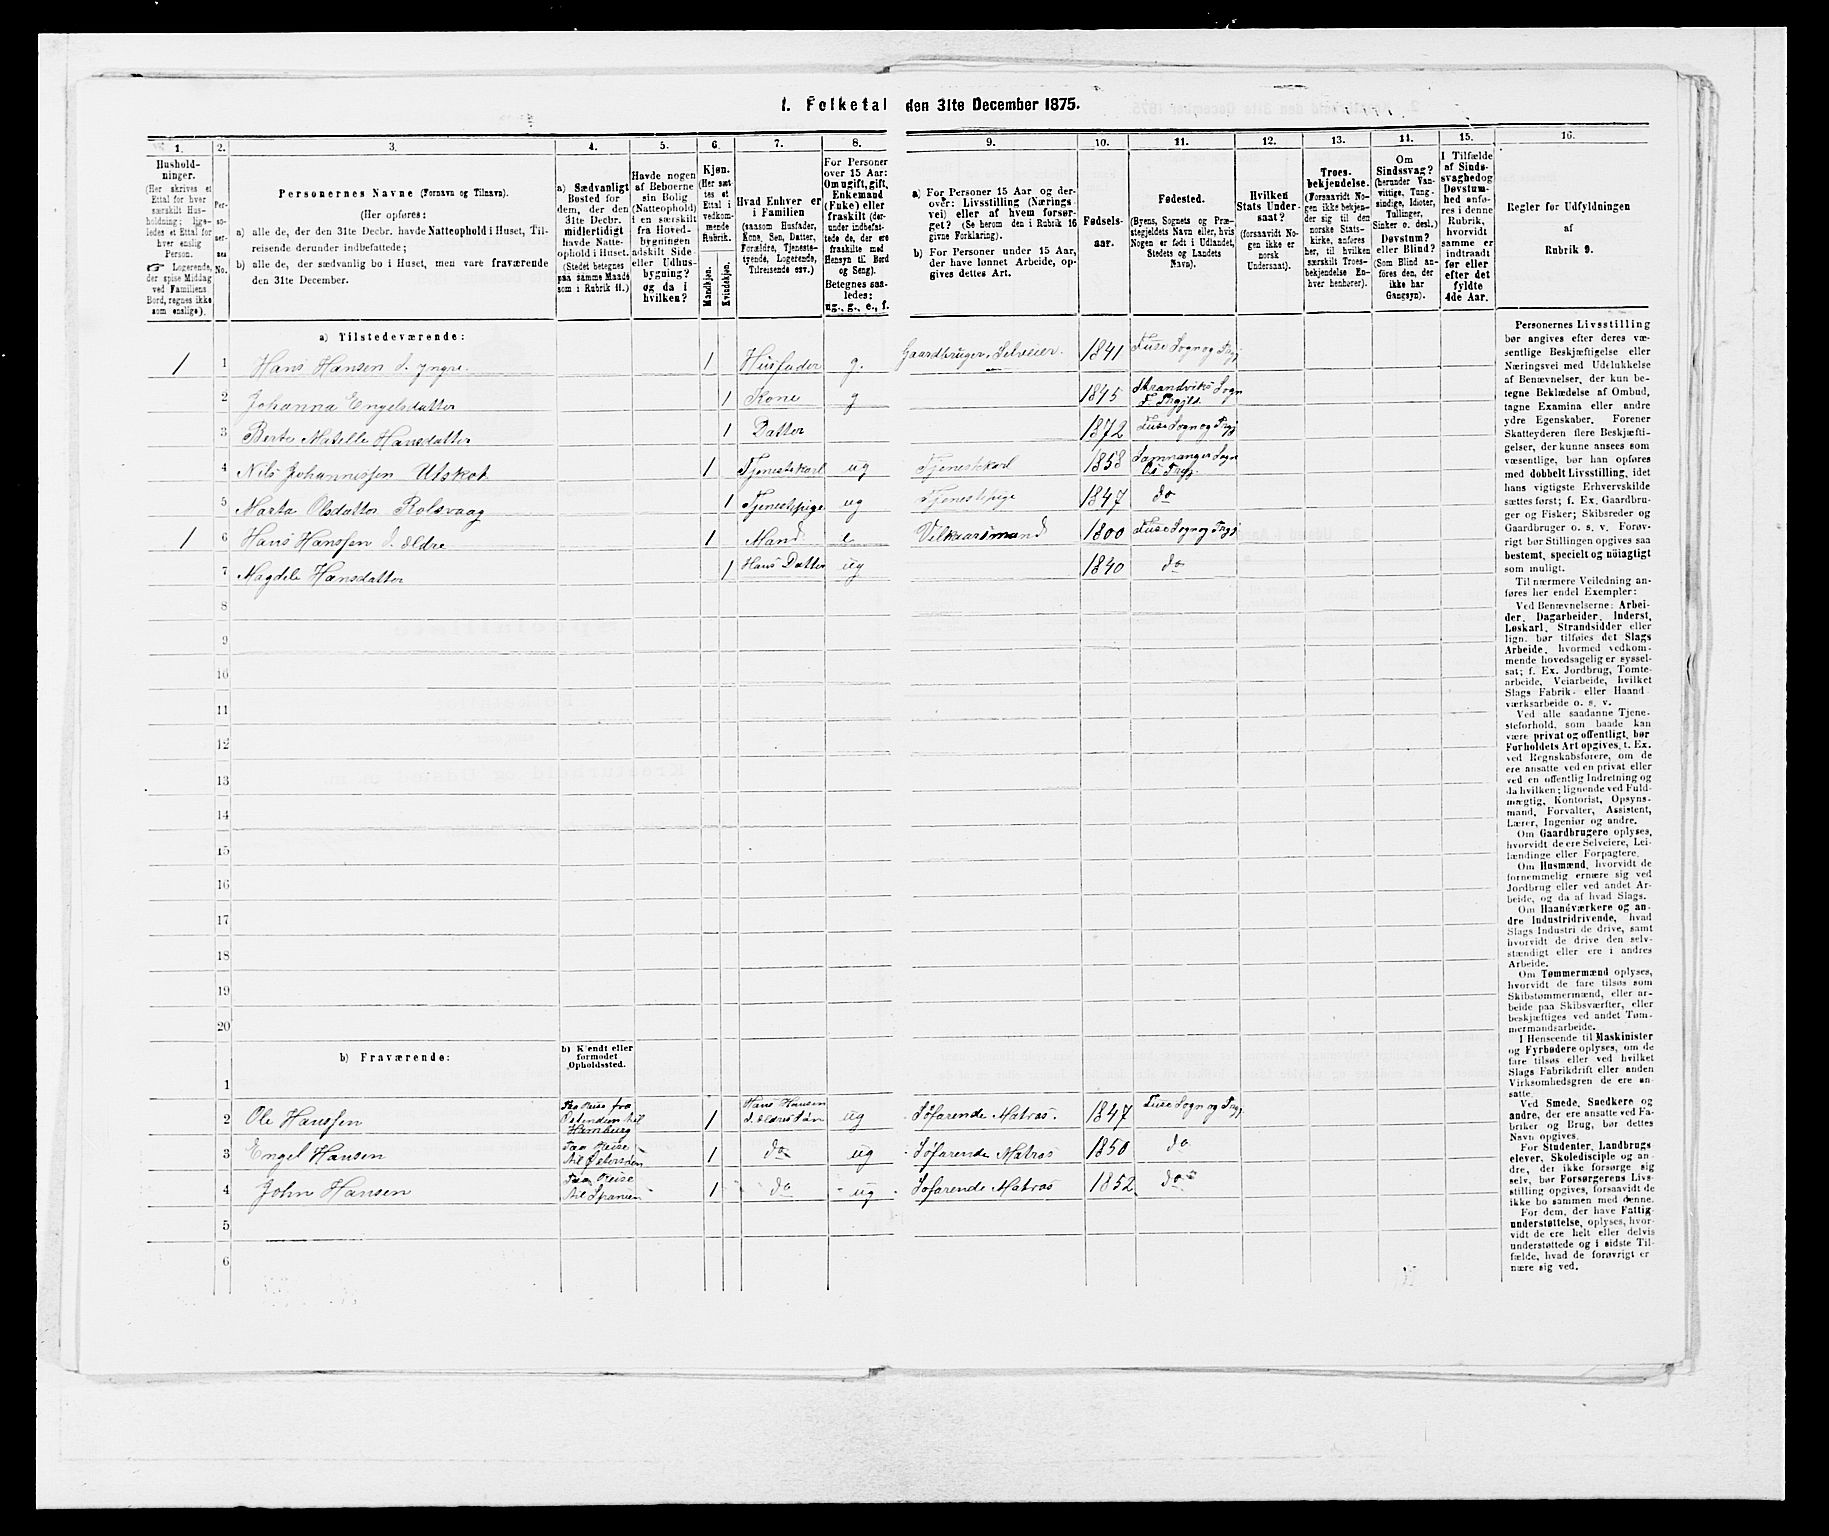 1. Folketal den 31te December 1875.
1. 2. 3. 4. 5. 6. 7. 8. 9. 10. 11. 12. 13. 14. 15. 16.
Hushold-
ninger.
(Her skrives et
Ettal for hver
særskilt Hus-
holdning; lige-
ledes et Ettal for
hver enslig
Person.
☞ Logerende,
der spise Middag
ved Familiens
Bord, regnes ikke
som enslige).
Per-
so-
ner-
nes
No.
Personernes Navne (Fornavn og Tilnavn).
(Her opføres:
a) alle de, der den 31te Decbr. havde Natteophold i Huset, Til-
reisende derunder indbefattede;
b) alle de, der sædvanlig bo i Huset, men vare fraværende
den 31te December.
a) Sædvanligt
Bosted for
dem, der den
31te Decbr.
midlertidigt
havde Natte-
ophold i Huset.
(Stedet betegnes
paa samme Maade
som i Rubrik 11.)
Havde nogen
af Beboerne
sin Bolig
(Natteophold)
i en særskilt
fra Hoved-
bygningen
adskilt Side-
eller Udhus-
bygning?
og da i
hvilken?
Kjøn.
(Her sæt-
tes et
Ettal i
vedkom-
mende
Rubrik.
Mandkjøn.
Kvindekjøn.
Hvad Enhver er
i Familien
(saasom Husfader,
Kone, Søn, Datter,
Forældre, Tjeneste-
tyende, Logerende,
Tilreisende osv.)
For Personer
over 15 Aar:
Om ugift, gift,
Enkemand
(Enke) eller
fraskilt (der-
under indbefat-
tede de, der ere
fraskilte med
Hensyn til Bord
og Seng).
Betegnes saa-
ledes:
ug., g., e., f.
a) For Personer 15 Aar og der-
over: Livsstilling (Nærings-
vei) eller af hvem forsør-
get? (Se herom den i Rubrik 16
givne Forklaring).
b) For Personer under 15 Aar,
der have lønnet Arbeide, op-
gives dettes Art.
Fødsels-
aar.
Fødested.
(Byens, Sognets og Præ-
stegjeldets Navn eller, hvis
Nogen er født i Udlandet,
Stedets og Landets
Navn).
Hvilken
Stats Under-
saat?
(forsaavidt No-
gen ikke er
norsk
Undersaat).
Troes-
bekjendelse.
(Forsaavidt No-
gen ikke bekjen-
der sig til den
norske Stats-
kirke, anføres
her, til hvilken
særskilt Troes-
bekjendelse En-
hver henhører).
Om
Sindssvag?
(herunder Van-
vittige, Tung-
sindige, Idioter,
Tullinger,
Sinker o. desl.)
Døvstum?
eller Blind?
(Som Blind an-
føres den, der
ikke har
Gangsyn).
I Tilfælde
af Sinds-
svaghed og
Døvstum-
hed anfø-
res i denne
Rubrik,
hvorvidt
samme er
indtraadt
før eller
efter det
fyldte
4de Aar.
Regler for Udfyldningen
af
Rubrik 9.
a) Tilstedeværende:
1 1 Hans Hansen d. yngre. 1 Husfader g. Gaardbruger, Selveier. 1841 Fuse Sogn og Prgj
2 Johanna Engelsdatter 1 Kone g 1845 Strandviks Sogn
F. Prgjld.
3 Berta Metelle Hansdatter 1 Datter 1872 Fuse Sogn og Prgj
4 Nils Johannessen Utskot 1 Tjenestekarl ug Tjenestekarl 1858 Samnanger Sogn
Os Prgj.
5 Marta Olsdatter Rolsvaag 1 Tjenestepige ug Tjenestepige 1847 do
1 6 Hans Hanssen d. ældre 1 Mand e. Vilkaarsmand 1800 Fuse Sogn og Prgj
7 Magdele Hansdatter 1 Hans Datter ug 1840 do
8
9
10
11
12
13
14
15
16
17
18
19
20
b) Fraværende:
b) Kjendt eller
formodet
Opholdssted.
1
2 Ole Hanssen Paa Reise fra
Ostindien til
Hamburg 1 Hans Hansen
d. ældres Søn ug Søfarende Matros. 1847 Fuse Sogn og Prgj.
3 Engel Hansen Paa Reise
til Østersøen 1 do ug Søfarende Matros 1850 do
4 John Hansen Paa Reise
til Spanien 1 do ug Søfarende Matros 1852 do
5
6
Personernes Livsstilling
bør angives efter deres væ-
sentlige Beskjæftigelse eller
Næringsvei med Udelukkelse
af Benævnelser, der kun be-
tegne Beklædelse af Ombud,
tagne Examina eller andre
ydre Egenskaber. Forener
Skatteyderen flere Beskjæfti-
gelser, der kunne ansees som
væsentlige, bør han opføres
med dobbelt Livsstilling, idet
hans vigtigste Erhvervskilde
sættes først; f. Ex. Gaardbru-
ger og Fisker; Skibsreder og
Gaardbruger o. s. v. Forøv-
rigt bør Stillingen opgives saa
bestemt, specielt og nöiagtigt
som muligt.
Til nærmere Veiledning an-
føres her endel Exempler:
Ved Benævnelserne: Arbei-
der, Dagarbeider, Inderst,
Løskarl, Strandsidder eller
lign. bør tilføies det Slags
Arbeide, hvormed vedkom-
mende hovedsagelig er syssel-
sat; f. Ex. Jordbrug, Tomte-
arbeide, Veiarbeide, hvilket
Slags Fabrik- eller Haand-
værksarbeide o. s. v.
Ved alle saadanne Tjene-
steforhold, som baade kan
være privat og offentligt, bør
Forholdets Art opgives, t. Ex.
ved Regnskabsførere, om de
ere ansatte ved en privat eller
ved en offentlig Indretning og
da hvilken; lignende ved Fuld-
mægtig, Kontorist, Opsyns-
mand, Forvalter, Assistent,
Lærer, Ingeniør og andre.
Om Gaardbrugere oplyses,
hvorvidt de ere Selveiere, Lei-
lændinge eller Forpagtere.
Om Husmænd, hvorvidt de
fornemmelig ernære sig ved
Jordbrug eller ved andet Ar-
beide, og da af hvad Slags.
Om Haandværkere og an-
dre Industridrivende, hvad
Slags Industri de drive, samt
hvorvidt de drive den selv-
stændigt eller ere i andres
Arbeide.
Om Tømmermænd oplyses,
hvorvidt de fare tilsøs som
Skibstømmermænd, eller ar-
beide paa Skibsværfter, eller
beskjæftiges ved andet Tøm-
mermandsarbeide.
I Henseende til Maskinister
og Fyrbødere oplyses, om de
fare tilsøs eller ved hvilket
Slags Fabrikdrift eller anden
Virksomhedsgren de ere an-
satte.
Ved Smede, Snedkere og
andre, der ere ansatte ved Fa-
briker og Brug, bør dettes
Navn opgives.
For Studenter, Landbrugs-
elever, Skoledisciple og an-
dre, der ikke forsørge sig
selv, bør Forsørgerens Livs-
stilling opgives, forsaavidt de
ikke bo sammen med denne.
For dem, der have Fattig-
understøttelse, oplyses, hvor-
vidt de ere helt eller delvis
understøttede og i sidste Til-
fælde, hvad de forøvrigt er-
nære sig ved.